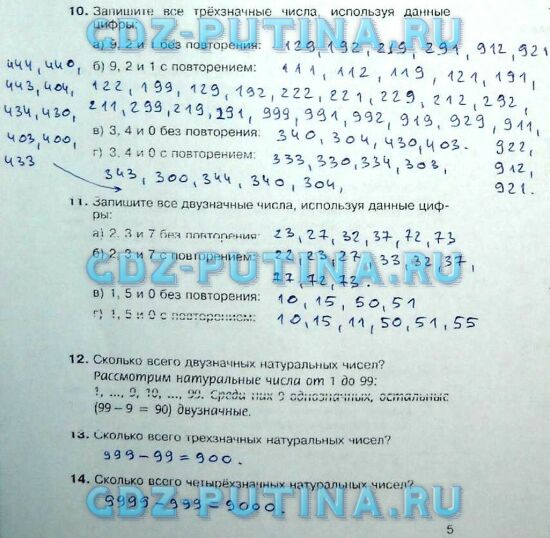 10. Запишите все трёхзначные числа, используя данные
цифры:
а) 9, 2 и 1 без повторения: 129, 192, 219, 291, 912, 921
б) 9, 2 и 1 с повторением: 111, 112, 119, 121, 191,
122, 199, 129, 192, 222, 221, 229, 212, 292,
211, 299, 219, 291, 999, 991, 992, 919, 929, 911,
922,
912,
921.
в) 3, 4 и 0 без повторения: 340, 304, 430, 403.
г) 3, 4 и 0 с повторением: 333, 330, 334, 303,
343, 300, 344, 340, 304,
444, 440,
443, 404,
434, 430,
403, 400,
433
11. Запишите все двузначные числа, используя данные циф-
ры:
а) 2, 3 и 7 без повторения: 23, 27, 32, 37, 72, 73
б) 2, 3 и 7 с повторением: 22, 23, 27, 33, 32, 37,
77, 72, 73.
в) 1, 5 и 0 без повторения: 10, 15, 50, 51
г) 1, 5 и 0 с повторением: 10, 15, 11, 50, 51, 55
12. Сколько всего двузначных натуральных чисел?
Рассмотрим натуральные числа от 1 до 99:
1, ..., 9, 10, ..., 99. Среди них 9 однозначных, остальные
(99 – 9 = 90) двузначные.
13. Сколько всего трехзначных натуральных чисел?
999 – 99 = 900.
14. Сколько всего четырёхзначных натуральных чисел?
9999 – 999 = 9000.
5
GDZ-PUTINA.RU
GDZ-PUTINA.RU
GDZ-PUTINA.RU
GDZ-PUTINA.RU
GDZ-PUTINA.RU